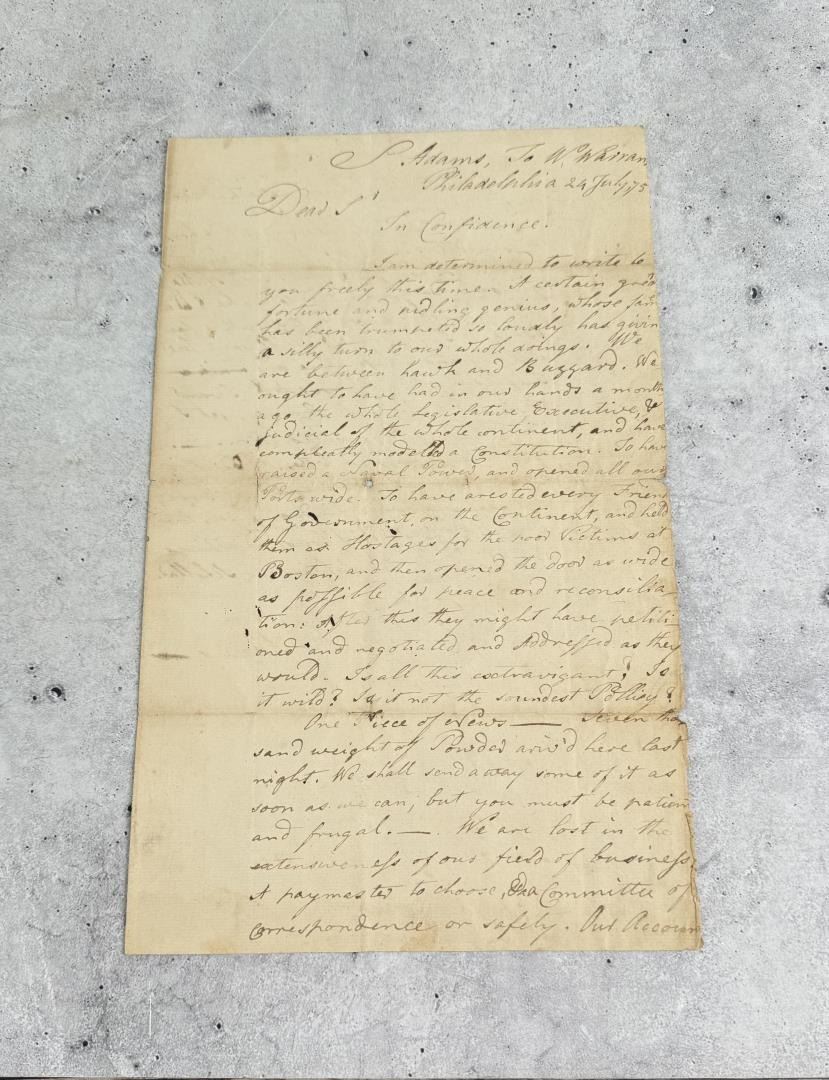 S Adams, To W. Warran
Philadelphia 24 July, 75
Dear Sr
In Confidence.
I am determined to write to
you freely this time. A certain great
fortune and pidling genius, whose fam
has been trumpeted so loudly has givin
a silly turn to our whole doings. We
are between hawk and Buzzard. We
ought to have had in our hands a month
ago, the whole Legislative, Executive, &
judicial of the whole continent, and have
compleatly modelled a Constitution. To have
raised a Naval Power, and opened all our
Ports wide. To have arested every Frien
of Government, on the Continent, and held
them as Hostages for the poor Victims at
Boston, and then opened the door as wide
as possible for peace and reconsilia
tion: After this they might have petiti
oned and negotiated and Addressed as they
would. Is all this extravigant? Is
it wild? Is it not the soundest Pollicy?
One Piece of News — Seven thou
sand weight of Powder ariv'd here last
night. We shall send away some of it as
soon as we can; but you must be patien
and frugal. — We are lost in the
extensiveness of our field of business.
A paymaster to choose, a Committee of
Correspondence or safety. Our Accoun